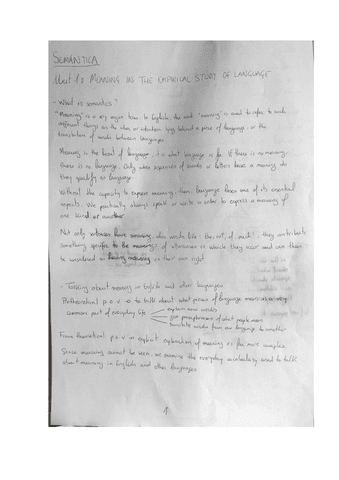 SEMÁNTICA
Unit 1: MEANING IN THE EMPIRICAL STUDY OF LANGUAGE
- What is semantics?
"Meaning" is a very vague term. In English, the word 'meaning' is used to refer to such
different things as the idea or intention lying behind a piece of language, or the
translation of words between languages.
Meaning is the heart of language, it is what language is for. If there is no meaning,
there is no language. Only when sequences of sounds or letters have a meaning, do
they qualify as language.
Without the capacity to express meaning, then, language loses one of its essential
aspects. We practically always speak or write in order to express a meaning of
one kind or another
Not only utterances have meaning, also words like: the, not, of, each, they contribute
something specific to the meanings of utterances in which they occur and can then
be considered as having meaning in their own right.
- Talking about meaning in English and other languages
Pretheoretical p.o.v → to talk about what pieces of language mean is a very
common part of everyday life
explain new words
give paraphrases of what people mean
translate words from one language to another
From theoretical p.o.v → explicit explanation of meaning is far more complex
Since meanings cannot be seen, we examine the everyday vocabulary used to talk
about meaning in English and other languages
1